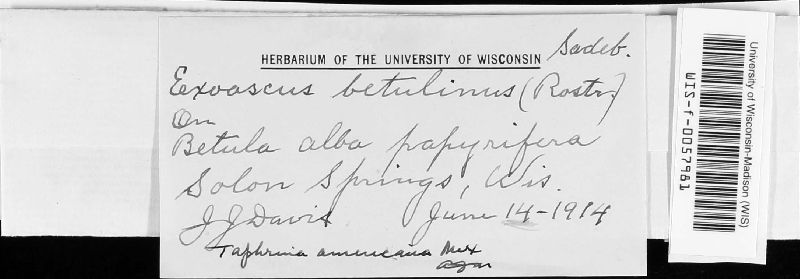 HERBARIUM OF THE UNIVERSITY OF WISCONSIN
Exoascus betulinus (Rostr.) Sadeb.
On
Betula alba papyrifera
Solon Springs, Wis.
J J Davis June 14-1914
Taphrina americana Mix
University of Wisconsin-Madison (WIS)
WIS-f-0057981